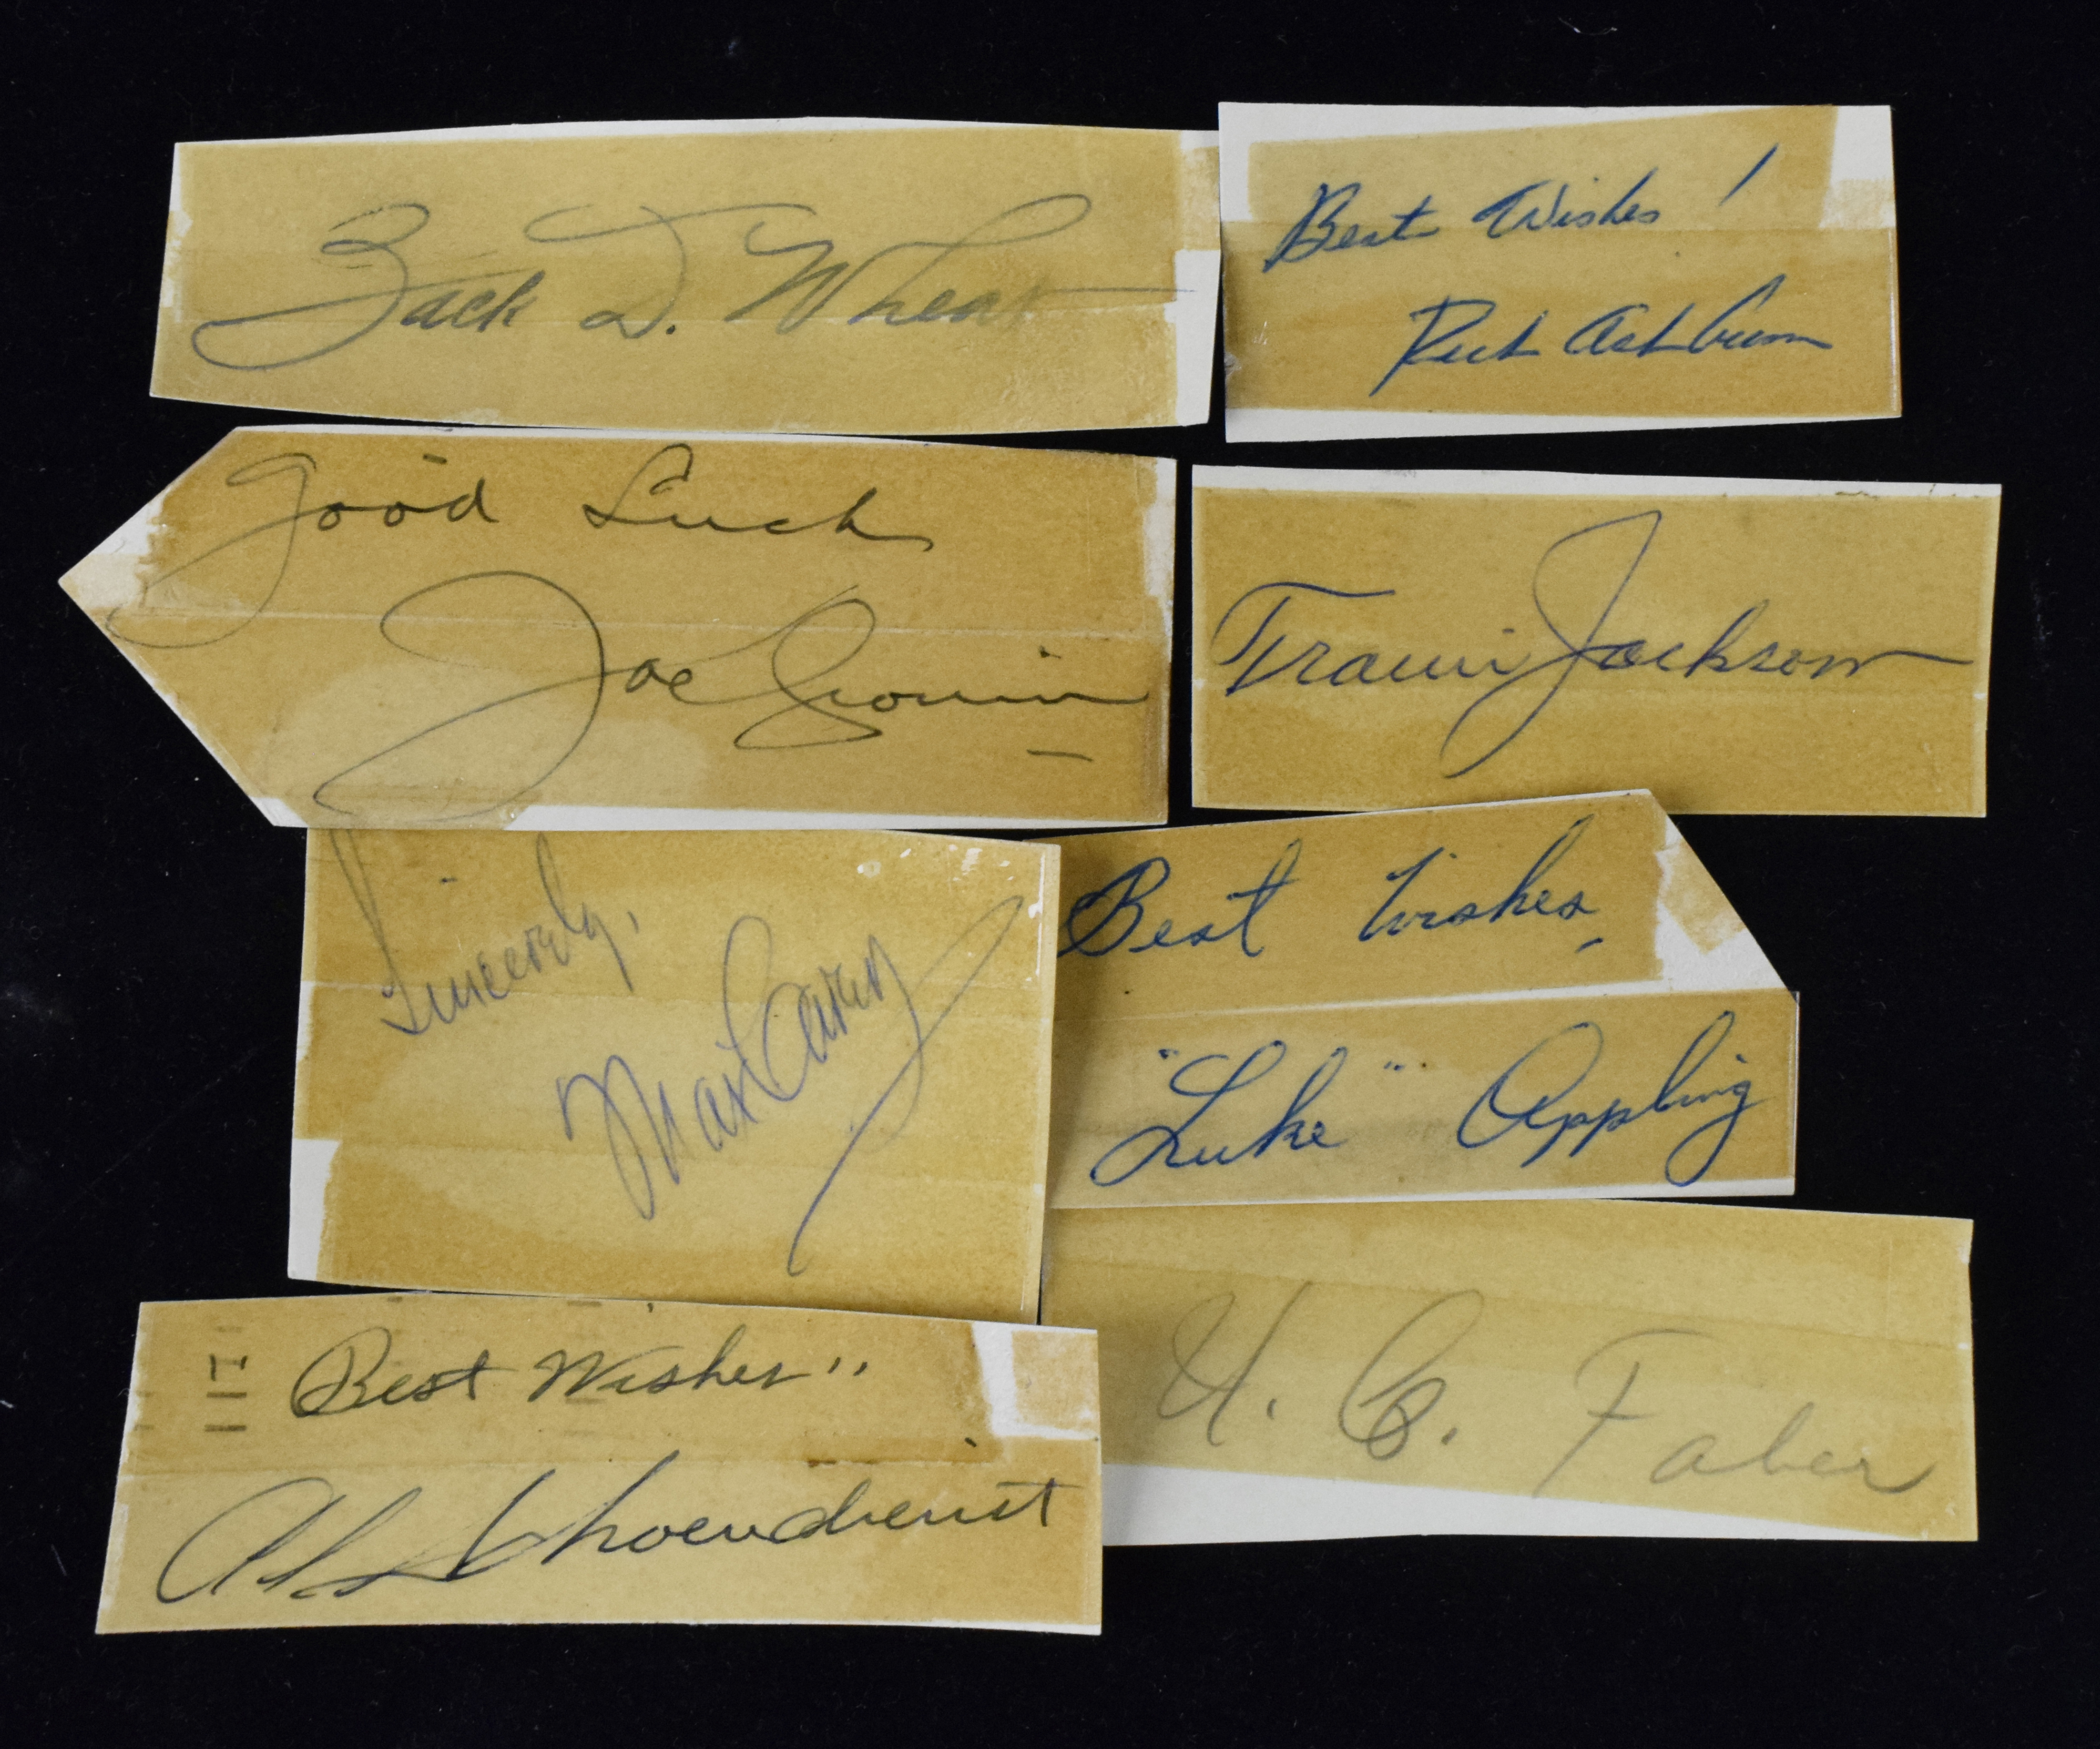 Zack D. Wheat
Best Wishes!
Rich Ashburn
Good Luck
Joe Cronin
Travis Jackson
Sincerely,
Max Carey
Best Wishes,
"Luke" Appling
Best Wishes"
Al Schoendienst
U. C. Faber